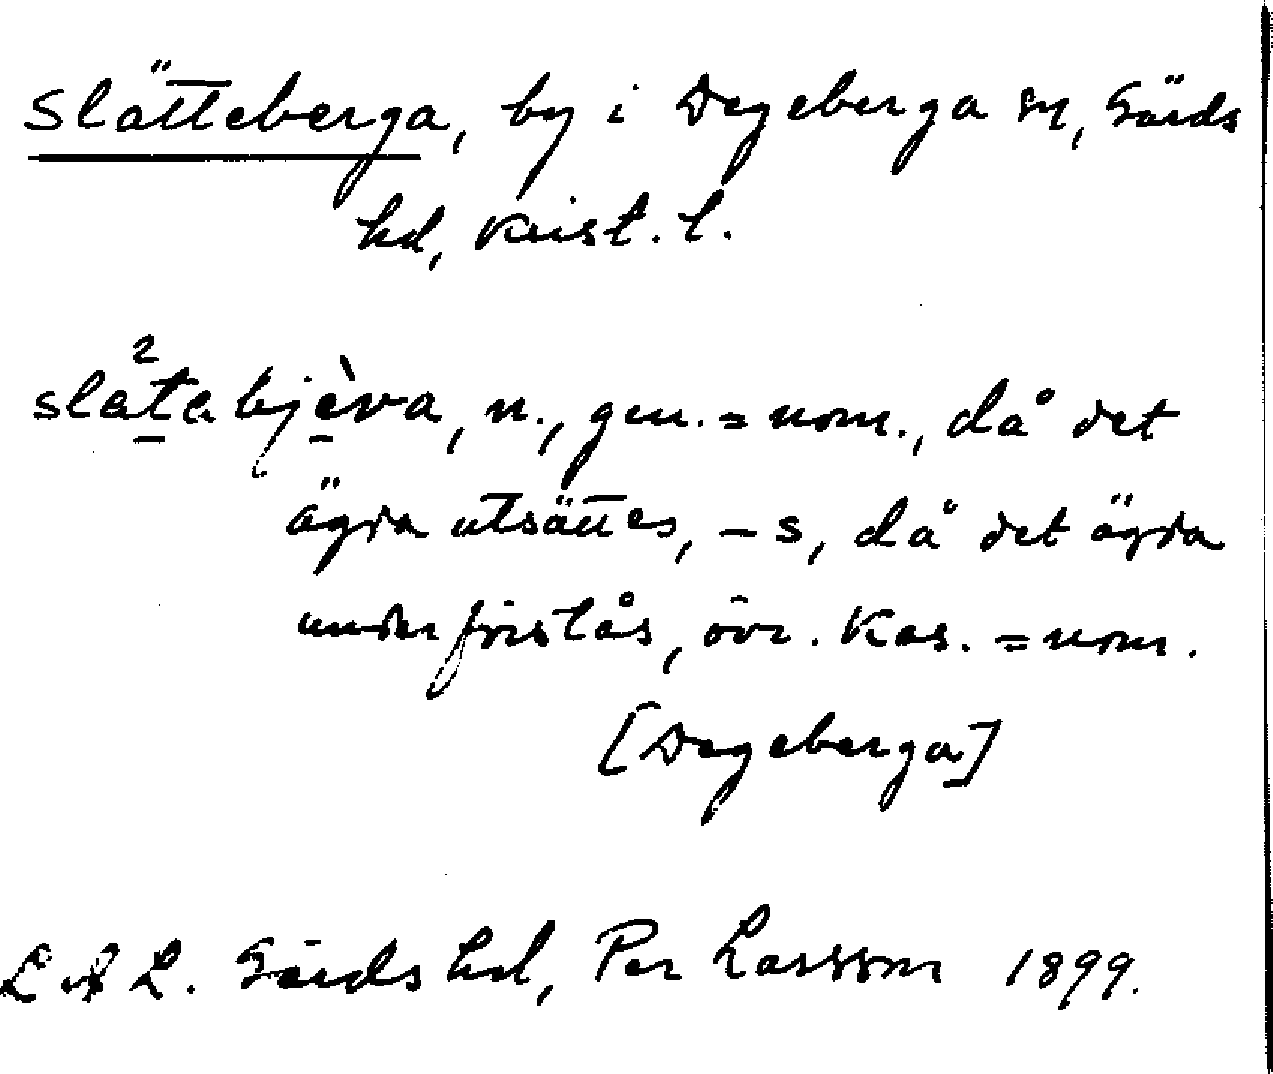 Slätteberga, by i Degeberga sn, Gärds
hd, Krist. l.
slätabjèva, n., gen. = nom., då det
ägda utsättes, -s, då det ägda
underförstås, övr. Kas. = nom.
[Degeberga]
LAL. Gärds hd, Per Larsson 1899.